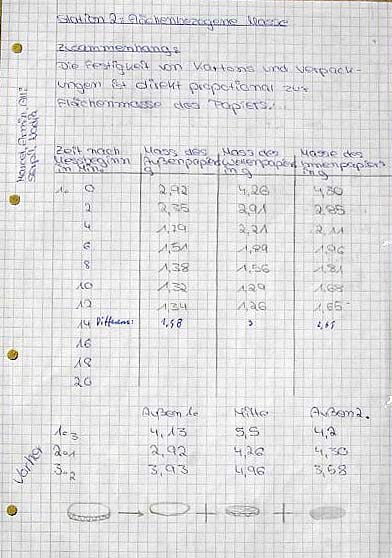 Station 2: Flächenbezogene Masse
Zusammenhang:
Die Festigkeit von Kartons und Verpack-
ungen ist direkt propotional zur
Flächenmasse des Papiers.
Marcel, Armin, Ali,
Zeit nach Messbeginn in Min. Mass des Außenpapiers g Mass des Wellenpapiers in g Masse des Innenpapiers in g
1. 0 2,92 4,26 4,30
2 2,35 2,91 2,85
4 1,79 2,21 2,11
6 1,51 1,89 1,96
8 1,38 1,56 1,81
10 1,32 1,29 1,68
12 1,34 1,26 1,65
14 Differenz: 1,58 3
16
18
20
Außen 1. Mitte Außen 2.
Vorher
1.3 4,13 5,5 4,2
2.1 2,92 4,26 4,30
3.2 3,93 4,96 3,58
+ +